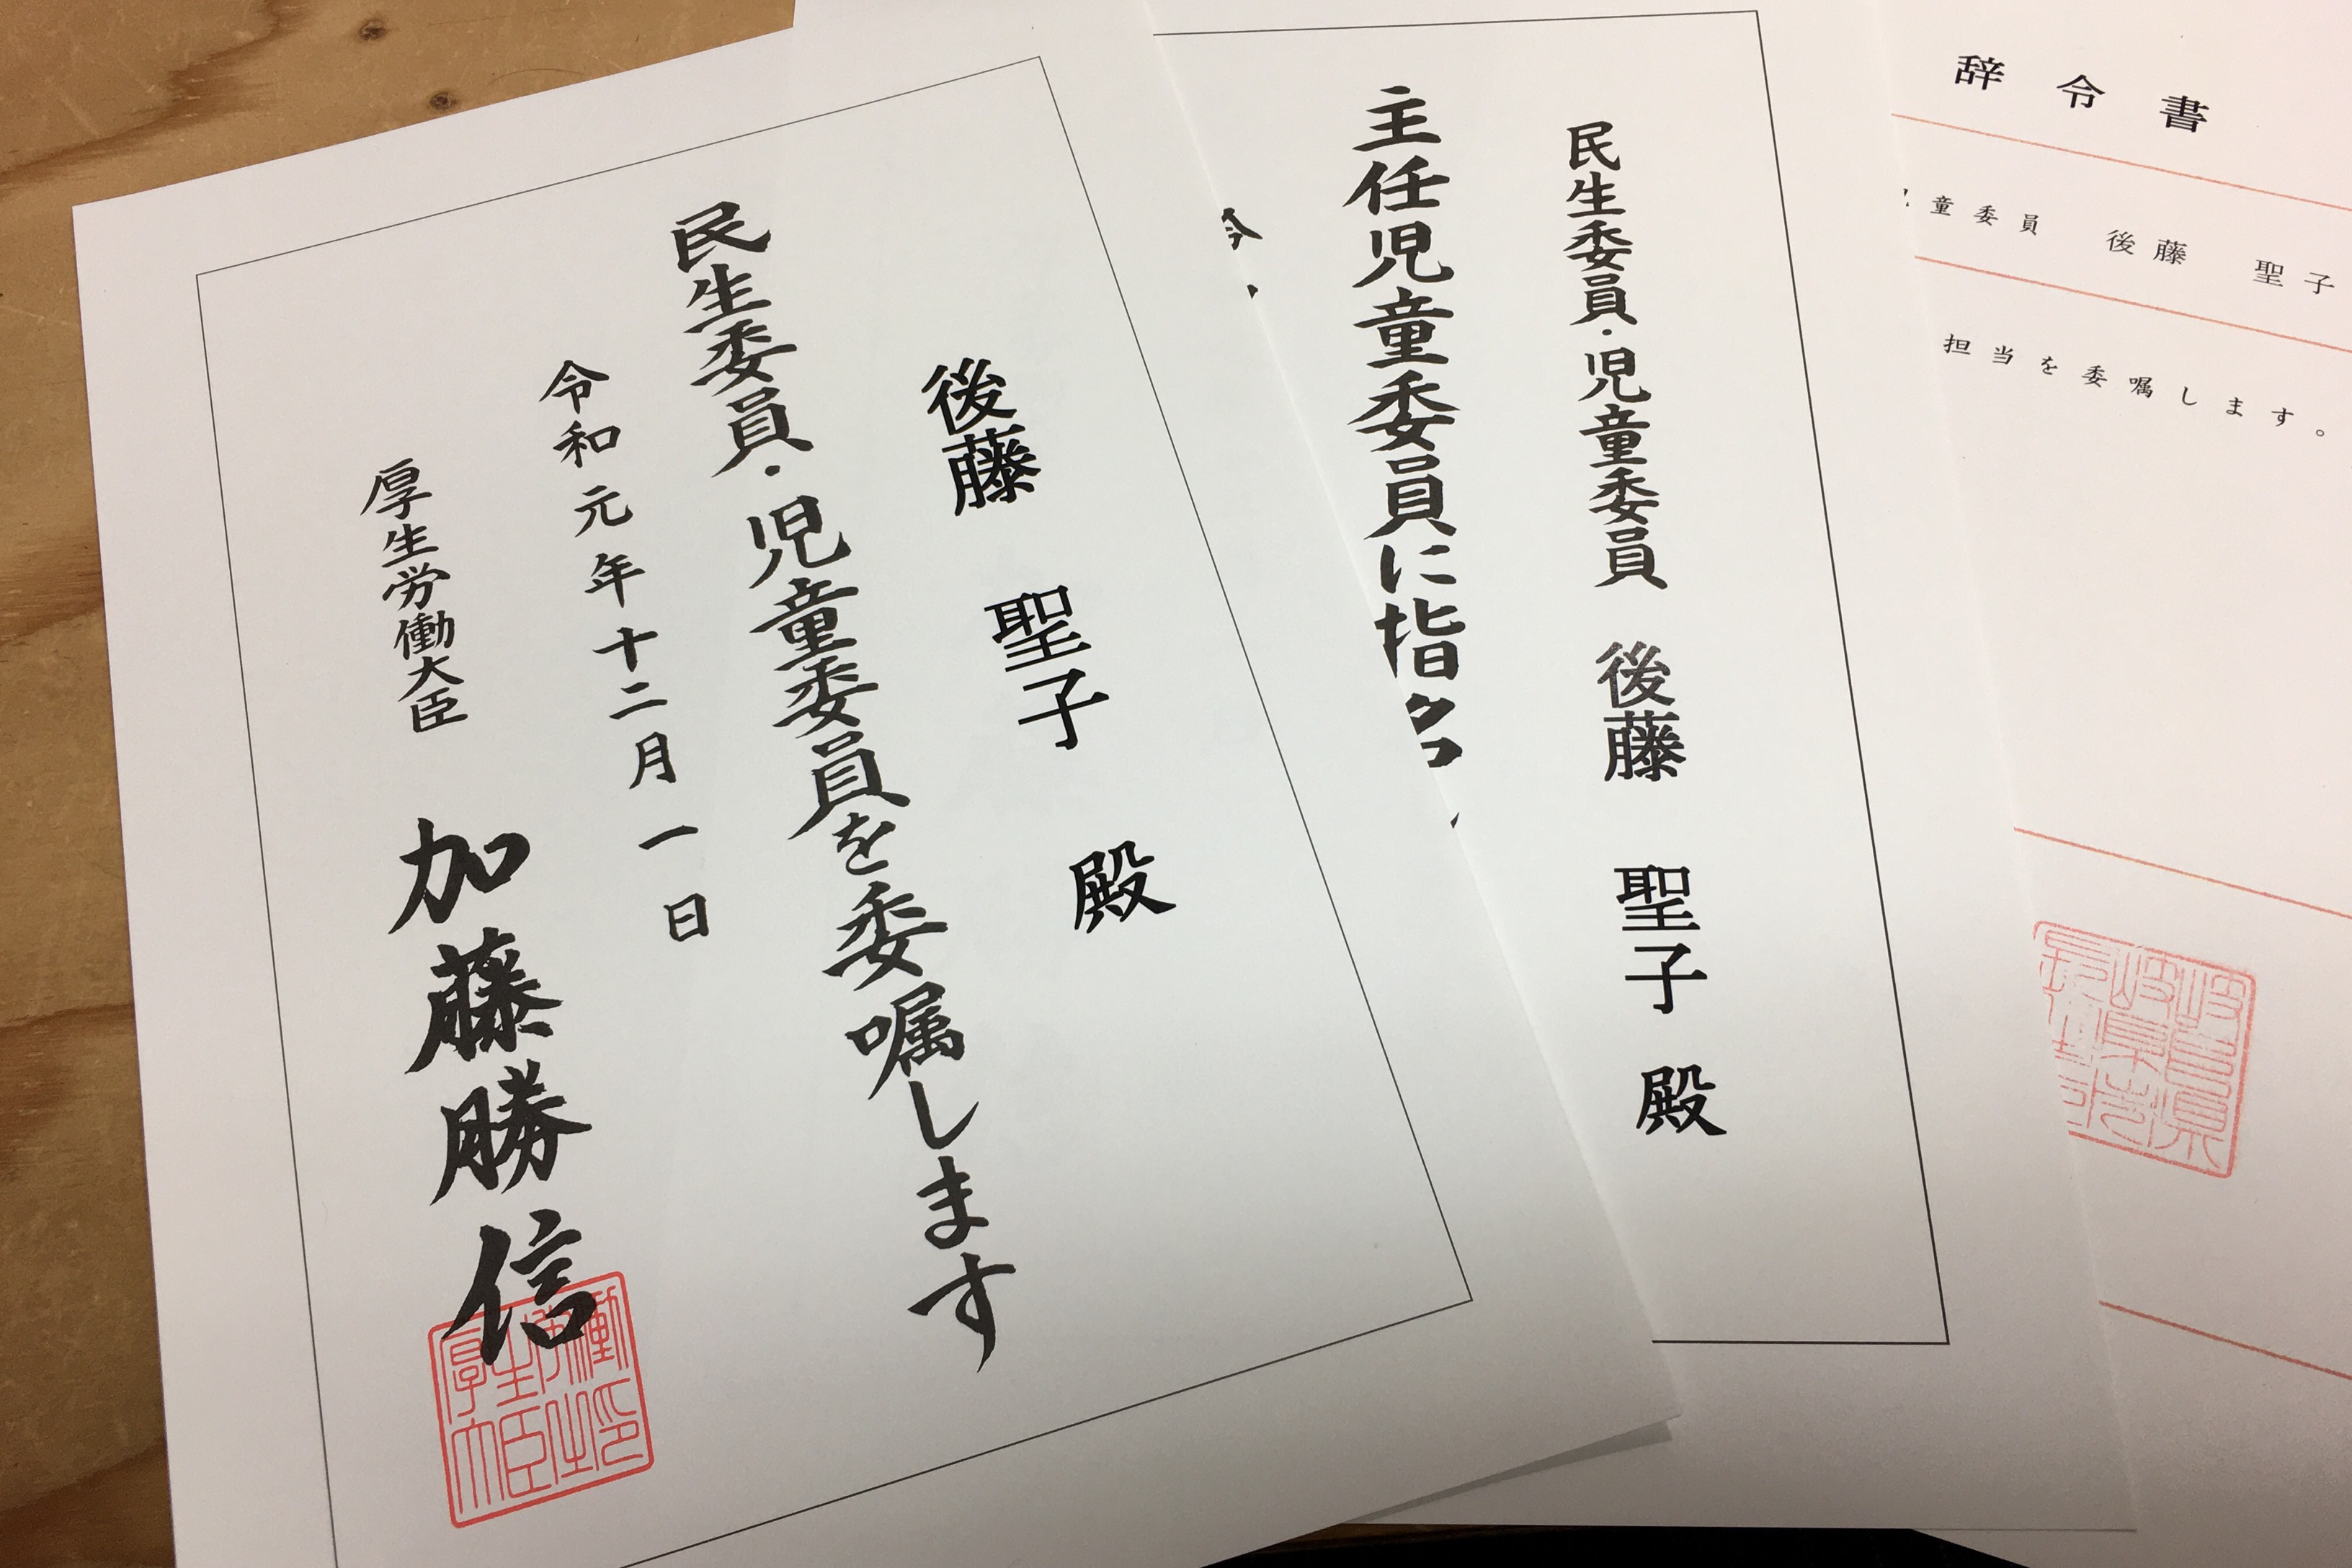 後藤 聖子 殿
民生委員・児童委員を委嘱します
令和元年十二月一日
厚生労働大臣 加藤勝信
民生委員・児童委員 後藤 聖子 殿
主任児童委員に指名
令
辞令書
児童委員 後藤 聖子
担当を委嘱します。